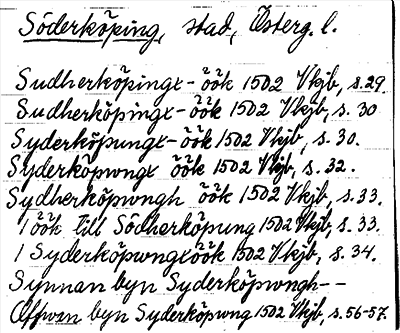 Söderköping, stad, Österg. l.
Sudherköpingx - öök 1502 Vkjb, s. 29.
Sudherköpingx - öök 1502 Vkjb, s. 30
Syderköpungx - öök 1502 Vkjb, s. 30.
Syderköpwngx öök 1502 Vkjb, s. 32.
Sydherköpwngh öök 1502 Vkjb, s. 33.
1 öök till Södherköpung 1502 Vkjb, s. 33.
1 Syderköpwngx öök 1502 Vkjb, s. 34.
Synnan byn Syderköpwngh - -
Offwan byn Syderköpwng 1502 Vkjb, s. 56-57.